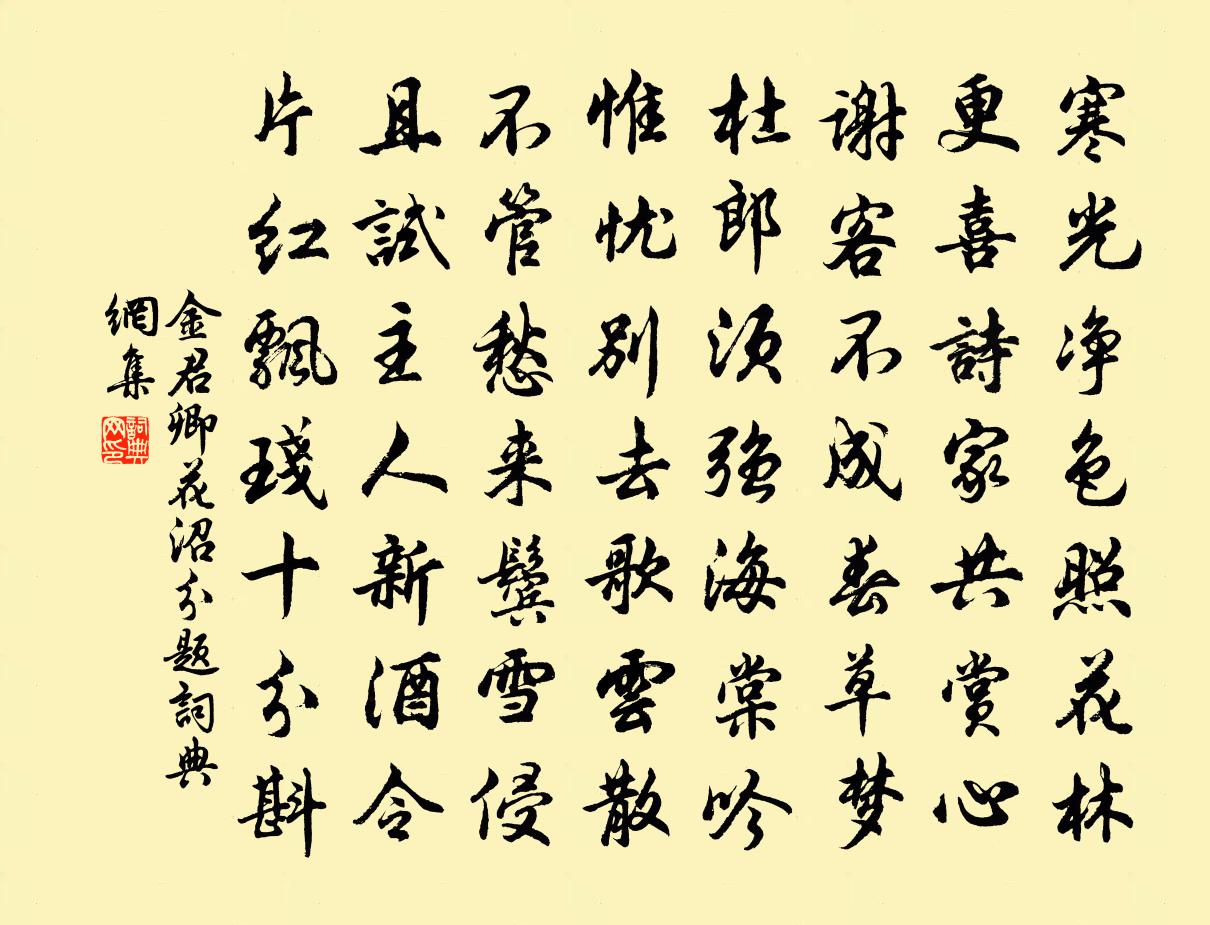 寒光净色照花林
更喜詩家共赏心
谢客不成春草梦
杜郎须强海棠吟
惟忧别去歌雲散
不管愁来鬓雪侵
且試主人新酒令
片红飄琖十分斟
金君卿花沼分题詞典
網集
詞典
网印